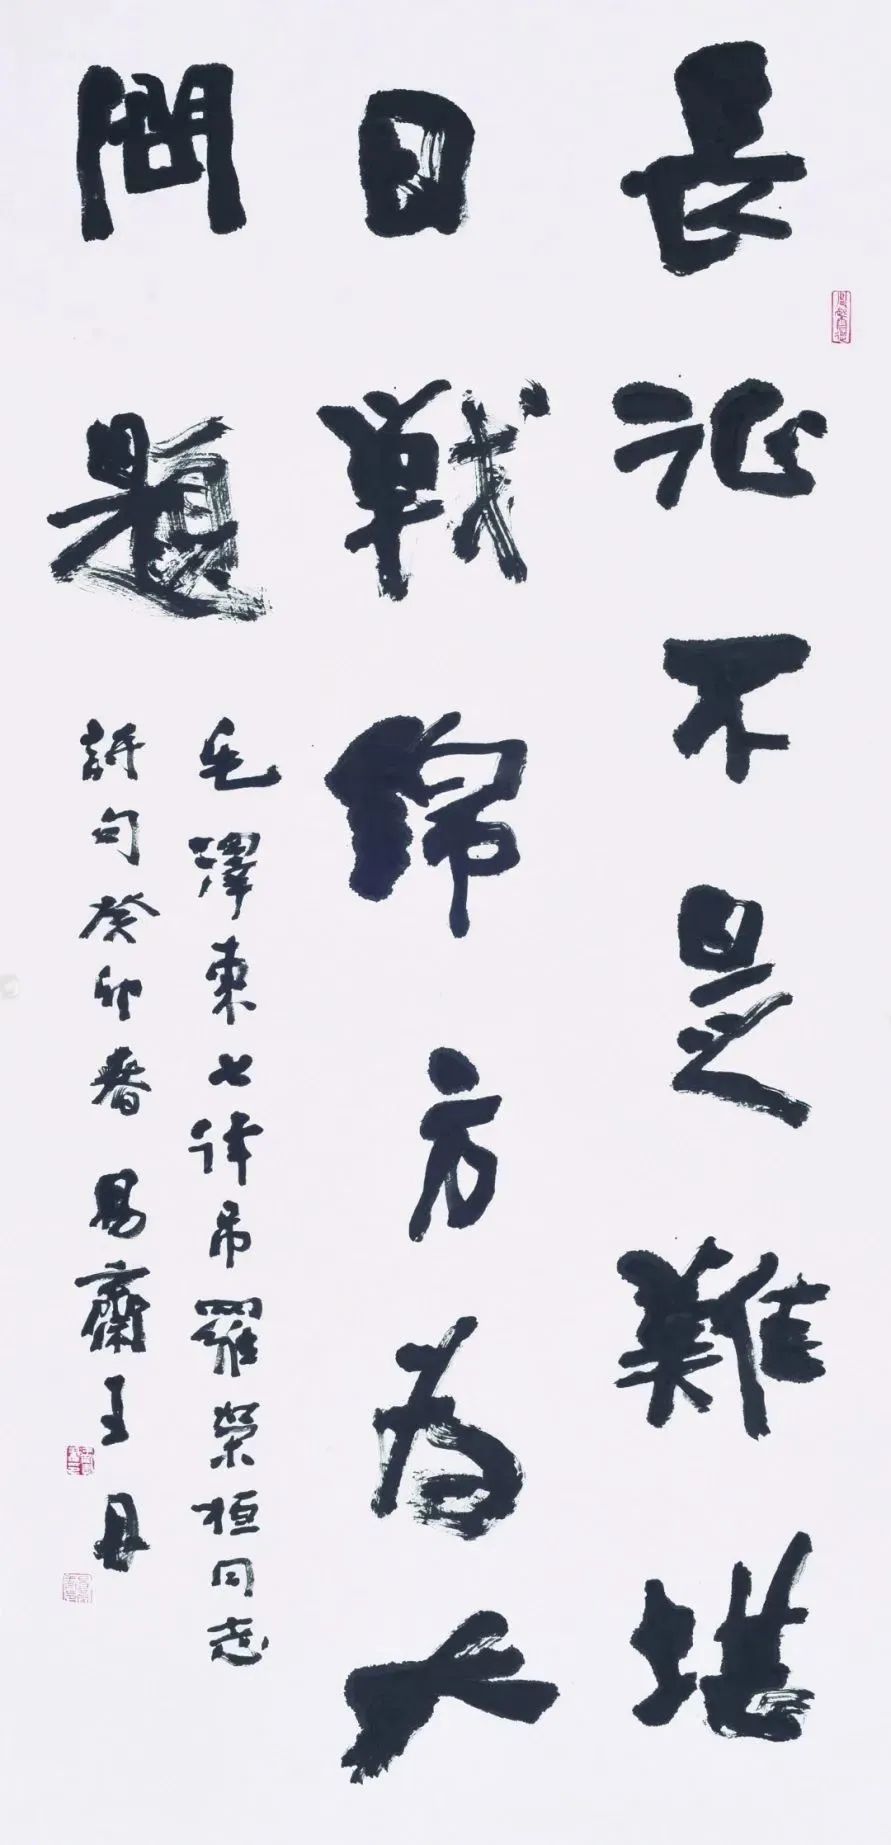 長征不是難堪
日戰錦方為大
問題
毛澤東七律吊羅榮桓同志
詩句癸卯春易齋王丹